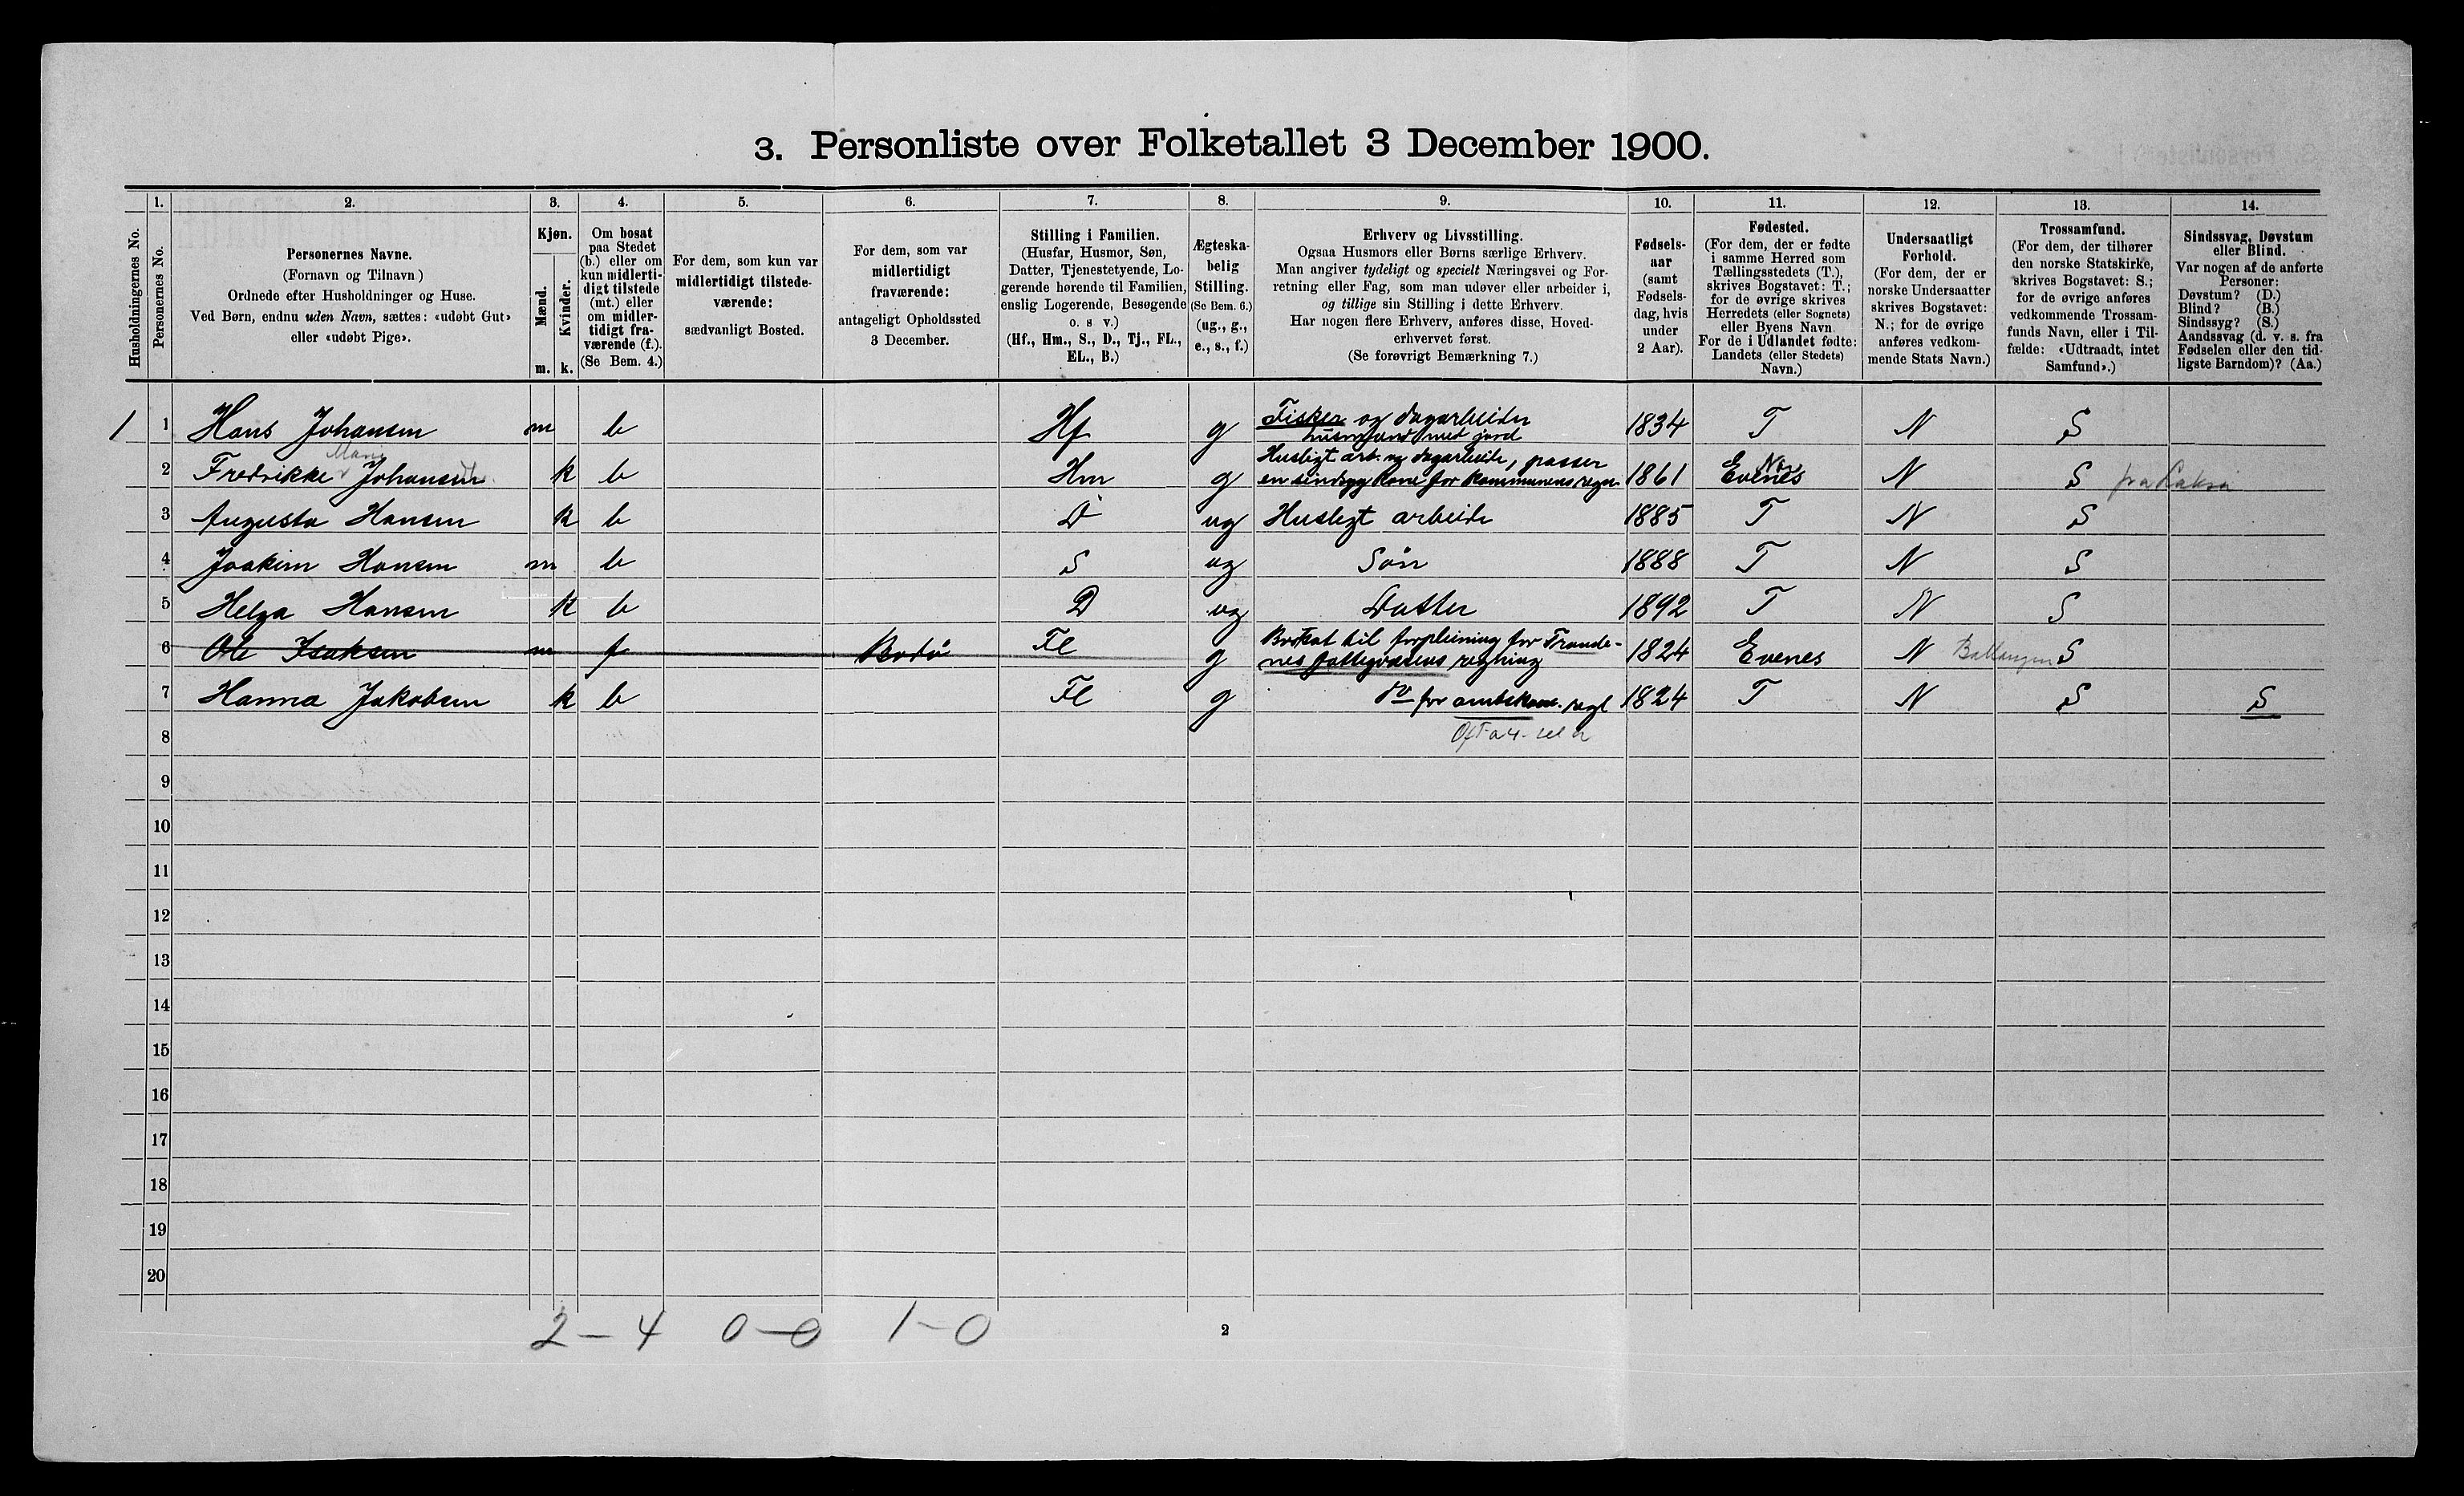 3. Personliste over Folketallet 3 December 1900.
Husholdningernes No.
1.
Personernes No.
2.
Personernes Navne.
(Fornavn og Tilnavn)
Ordnede efter Husholdninger og Huse.
Ved Børn, endnu uden Navn, sættes: «udøbt Gut»
eller «udøbt Pige».
3.
Kjøn.
Mænd.
m.
Kvinder.
k.
4.
Om bosat
paa Stedet
(b.) eller om
kun midlerti-
digt tilstede
(mt.) eller
om midler-
tidigt fra-
værende (f.).
(Se Bem. 4.)
5.
For dem, som kun var
midlertidigt tilstede-
værende:
sædvanligt Bosted.
6.
For dem, som var
midlertidigt
fraværende:
antageligt Opholdssted
3 December.
7.
Stilling i Familien.
(Husfar, Husmor, Søn,
Datter, Tjenestetyende, Lo-
gerende hørende til Familien,
enslig Logerende, Besøgende
o. s v.)
(Hf., Hm., S., D., Tj., FL.,
EL., B.)
8.
Ægteska-
belig
Stilling.
(Se Bem. 6.)
(ug., g.,
e., s., f.)
9.
Erhverv og Livsstilling.
Ogsaa Husmors eller Børns særlige Erhverv.
Man angiver tydeligt og specielt Næringsvei og For-
retning eller Fag, som man udøver eller arbeider i,
og tillige sin Stilling i dette Erhverv.
Har nogen flere Erhverv, anføres disse, Hoved-
erhvervet først.
(Se forøvrigt Bemærkning 7.)
10.
Fødsels-
aar
(samt
Fødsels-
dag, hvis
under
2 Aar).
11.
Fødested.
(For dem, der er fødte
i samme Herred som
Tællingsstedets (T.),
skrives Bogstavet: T.;
for de øvrige skrives
Herredets (eller Sognets)
eller Byens Navn.
For de i Udlandet fødte:
Landets (eller Stedets)
Navn.)
12.
Undersaatligt
Forhold.
(For dem, der er
norske Undersaatter
skrives Bogstavet:
N.; for de øvrige
anføres vedkom-
mende Stats Navn.)
13.
Trossamfund.
(For dem, der tilhører
den norske Statskirke,
skrives Bogstavet: S.;
for de øvrige anføres
vedkommende Trossam-
funds Navn, eller i Til-
fælde: «Udtraadt, intet
Samfund».)
14.
Sindssvag, Døvstum
eller Blind.
Var nogen af de anførte
Personer:
Døvstum? (D.)
Blind? (B.)
Sindssyg? (S.)
Aandssvag (d. v. s. fra
Fødselen eller den tid-
ligste Barndom)? (Aa.)
1 1 Hans Johansen m b Hf g Fisker og dagarbeider 1834 T N S
husmand med jord
Mari
2 Fredrikke Johansen k b Hm g Husligt arb. og dagarbeide, passer 1861 Evenes N S fra
en sindsyg kone for kommunens regn
3 Augusta Hansen k b D ug Husligt arbeide 1885 T N S
4 Joakim Hansen m b S ug Søn 1888 T N S
5 Helga Hansen k b D ug Datter 1892 T N S
6 Ole Isaksen m f Bodø Fl g Bortsat til forpleining for Tronde- 1824 Evenes N Ballangen S
nes fattigvæsens regning
7 Hanna Jakobsen k b Fl g do for amtskom. regl 1824 T N S S
8
9
10
11
12
13
14
15
16
17
18
19
20
2 - 4 0 - 0 1 - 0
2